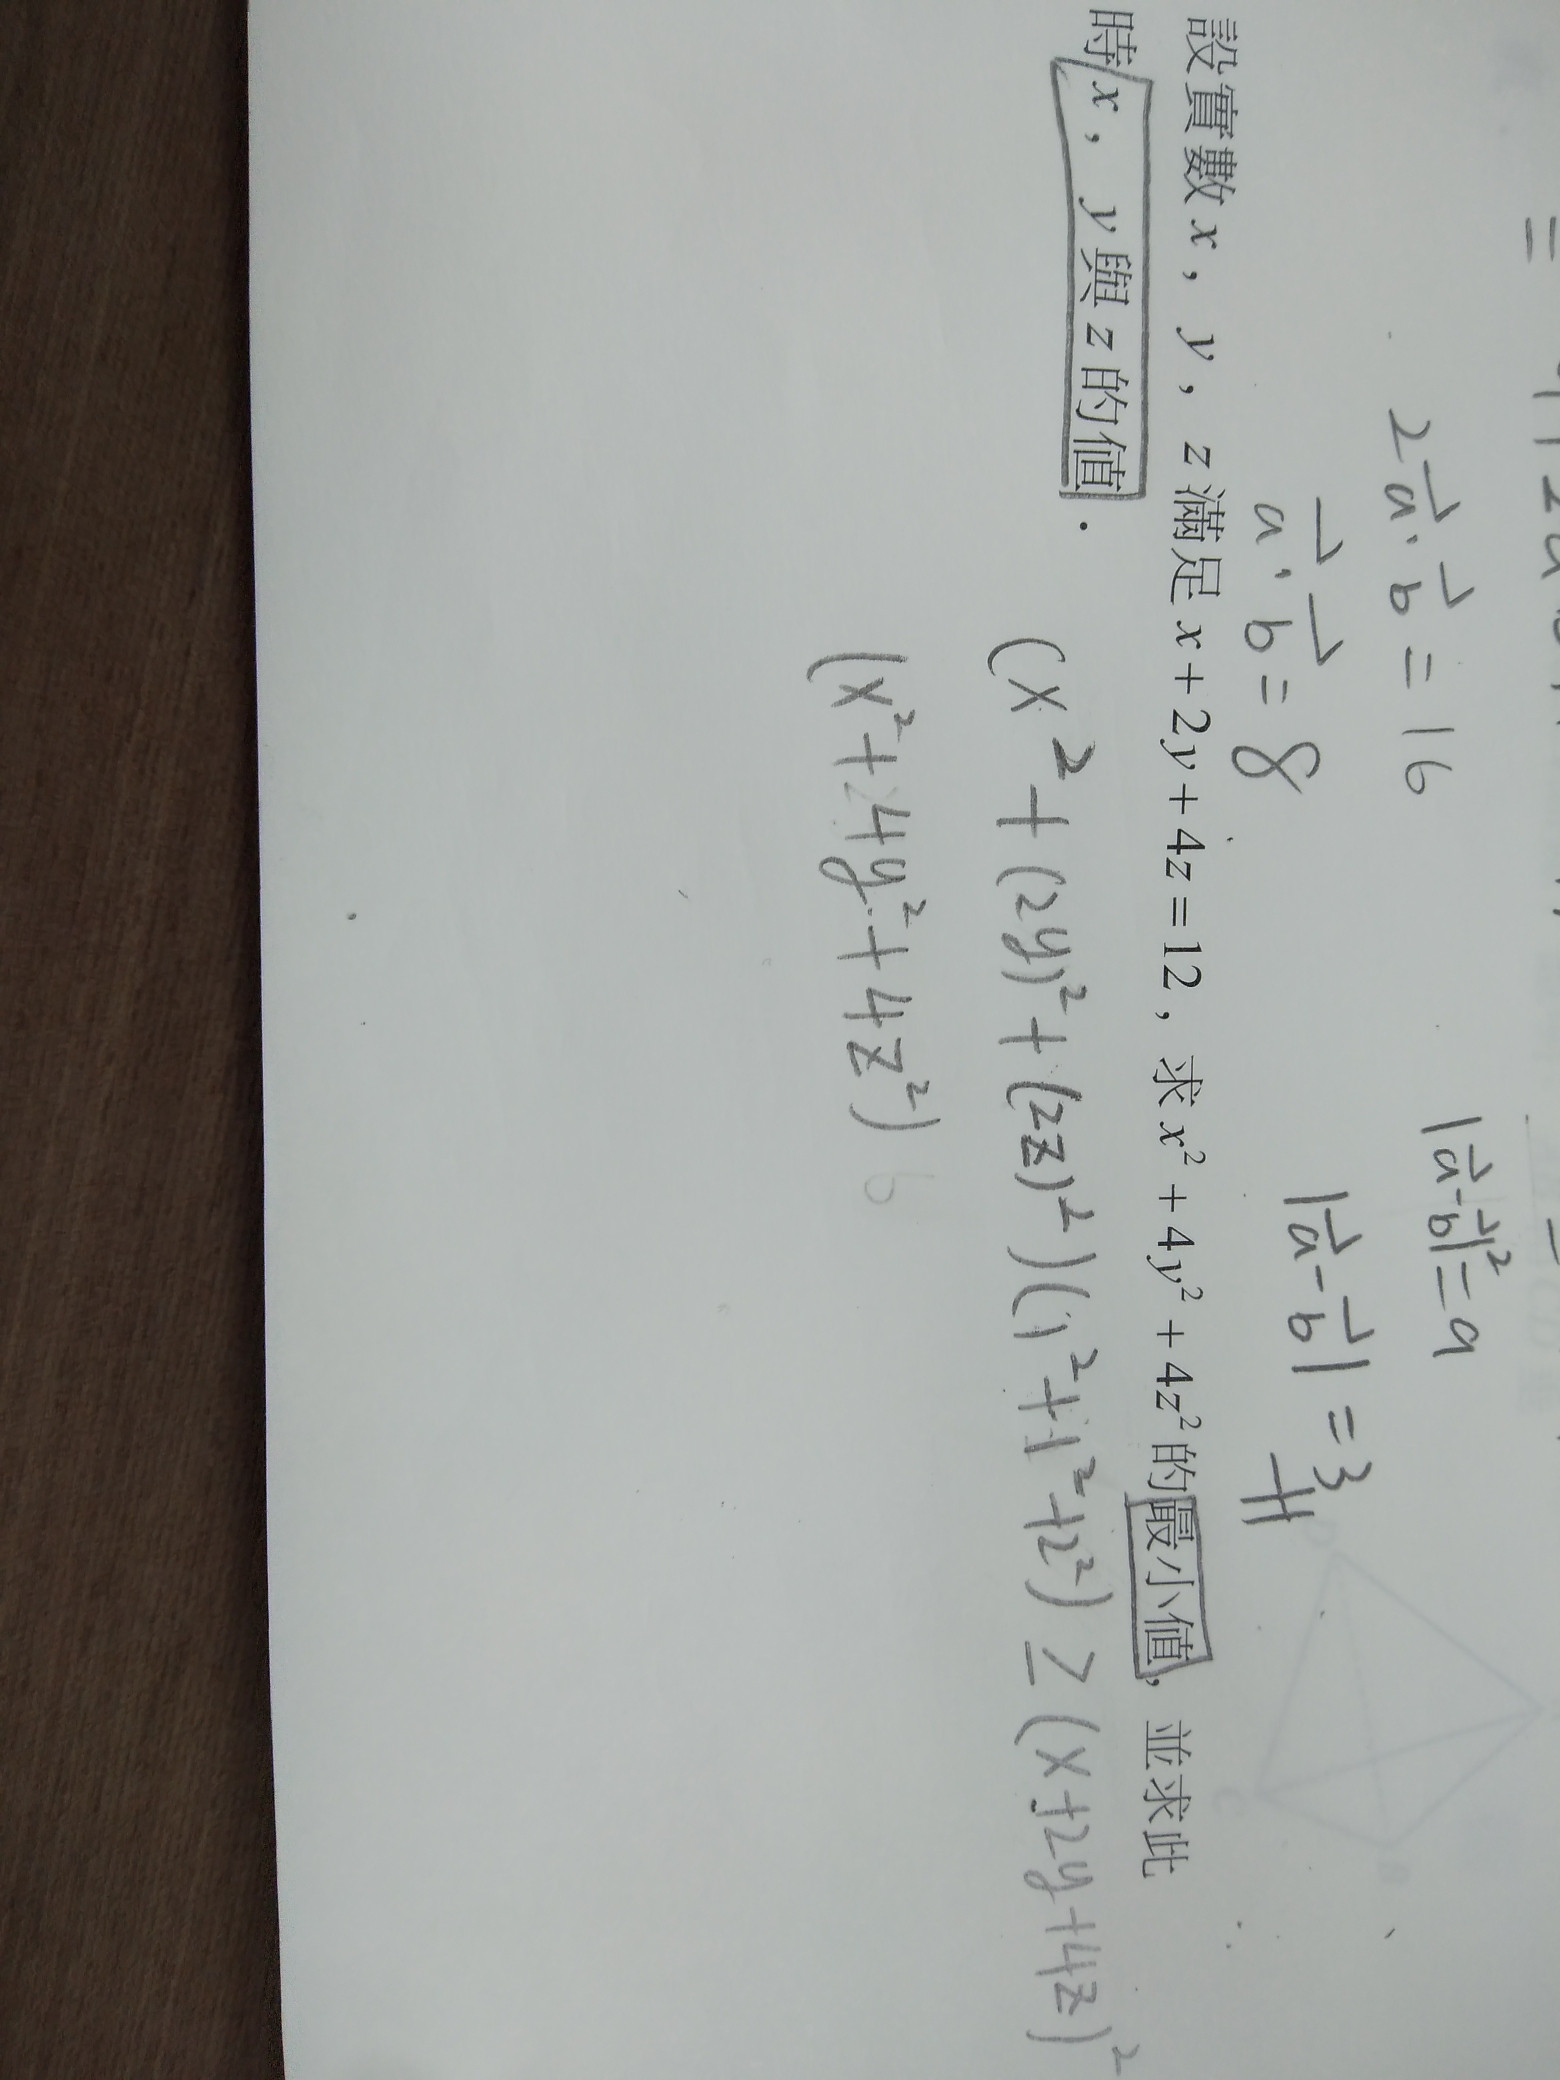 2a⃗·b⃗=16
|a⃗-b⃗|²=9
a⃗·b⃗=8
|a⃗-b⃗|=3
設實數x,y,z滿足x+2y+4z=12,求x²+4y²+4z²的最小值,並求此
時x,y與z的值.
(x²+(2y)²+(2z)²)(1²+1²+2²)≥(x+2y+4z)²
(x²+4y²+4z²)6